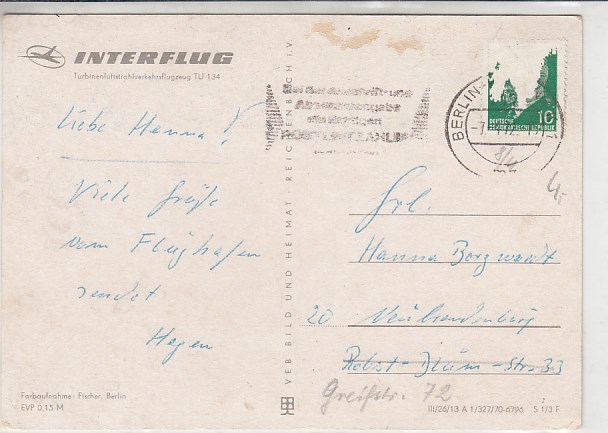 INTERFLUG
Turbinenluftstrahlverkehrsflugzeug TU 134
Liebe Hanna!
Viele Grüße
vom Flughafen
sendet
Hegen
Farbaufnahme: Fischer, Berlin
EVP 0,15 M
VEB BILD UND HEIMAT REICHENBACH I.V
Bei der Anschrift- und
Absenderangabe
die richtigen
POSTLEITZAHLEN
BERLIN
10
DEUTSCHE
DEMOKRATISCHE REPUBLIK
4,-
Frl.
Hanna Borgwardt
20 Neubrandenburg
Robert-Blum-Str. 33
Greifstr. 72
III/26/13 A 1/327/70-6796 S 1/3 F